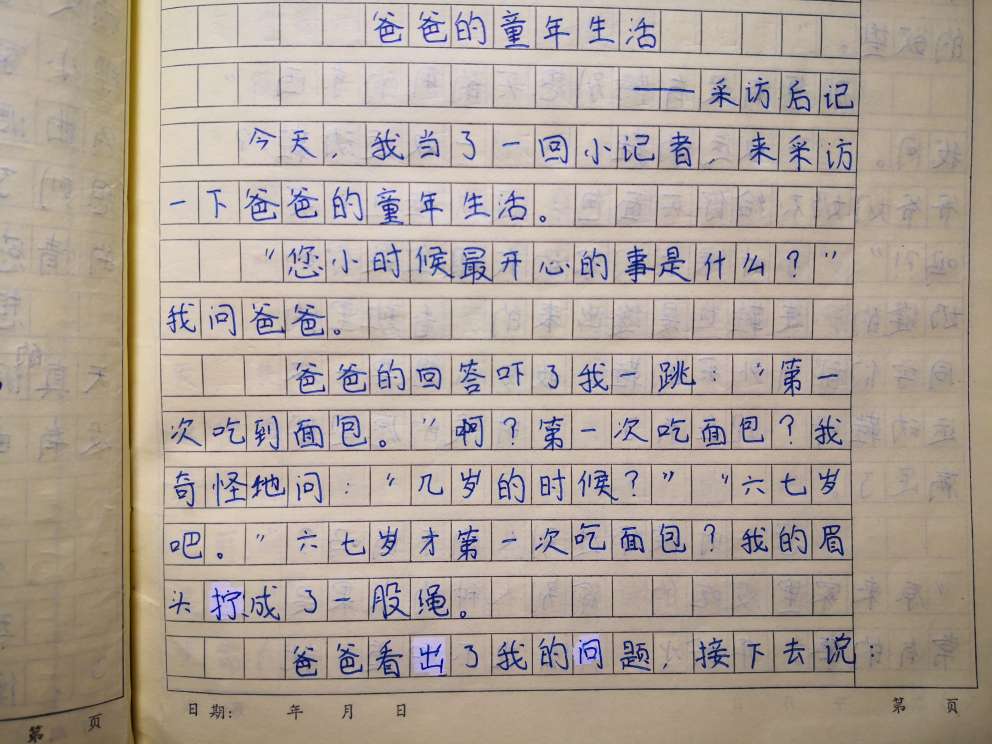 爸爸的童年生活
——采访后记
今天,我当了一回小记者,来采访
一下爸爸的童年生活。
“您小时候最开心的事是什么？”
我问爸爸。
爸爸的回答吓了我一跳：“第一
次吃到面包。”啊？第一次吃面包？我
奇怪地问：“几岁的时候？”“六七岁
吧。”六七岁才第一次吃面包？我的眉
头拧成了一股绳。
爸爸看出了我的问题,接下去说：
日期： 年 月 日
第 页
第 页